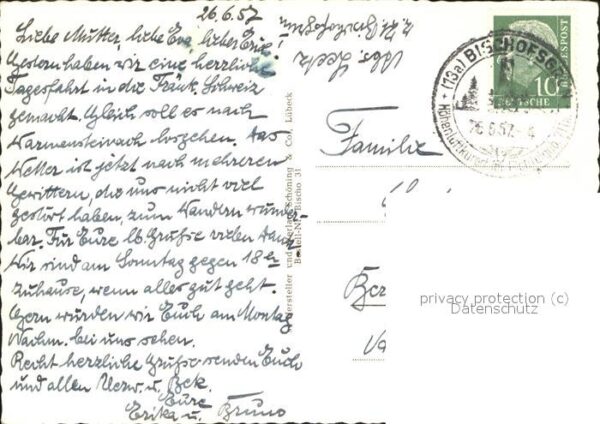 26.6.57
Liebe Mutter, liebe Eva, lieber Erik!
Gestern haben wir eine herrliche
Tagesfahrt in die Fränk. Schweiz
gemacht. Gleich soll es nach
Warmensteinach losgehen. Das
Wetter ist jetzt nach mehreren
Gewittern, die uns nicht viel
gestört haben, zum Wandern wunder-
bar. Für Eure lb. Grüße vielen Dank
Wir sind am Sonntag gegen 18 Uhr
zuhause, wenn alles gut geht.
Gern würden wir Euch am Montag
Nachm. bei uns sehen.
Recht herzliche Grüße senden Euch
und allen Verw. u. Bek.
Eure
Erika u. Bruno
Abs. Seelz
z. Zt. Bischofsgrün
Hersteller und Verlag Schöning & Co., Lübeck
Bestell-Nr. Bischo 31
(13a) BISCHOFSG
26.6.57
Höhenluftkurort
10
DEUTSCHE
BUNDESPOST
Familie
privacy protection (c)
Datenschutz